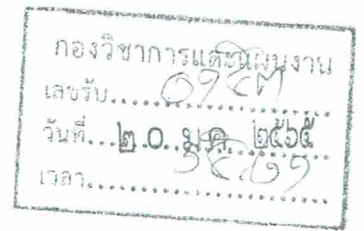 กองวิชาการและแผนงาน
เลขรับ
วันที่ ๒๐ ม.ค. ๒๕๖๕
เวลา